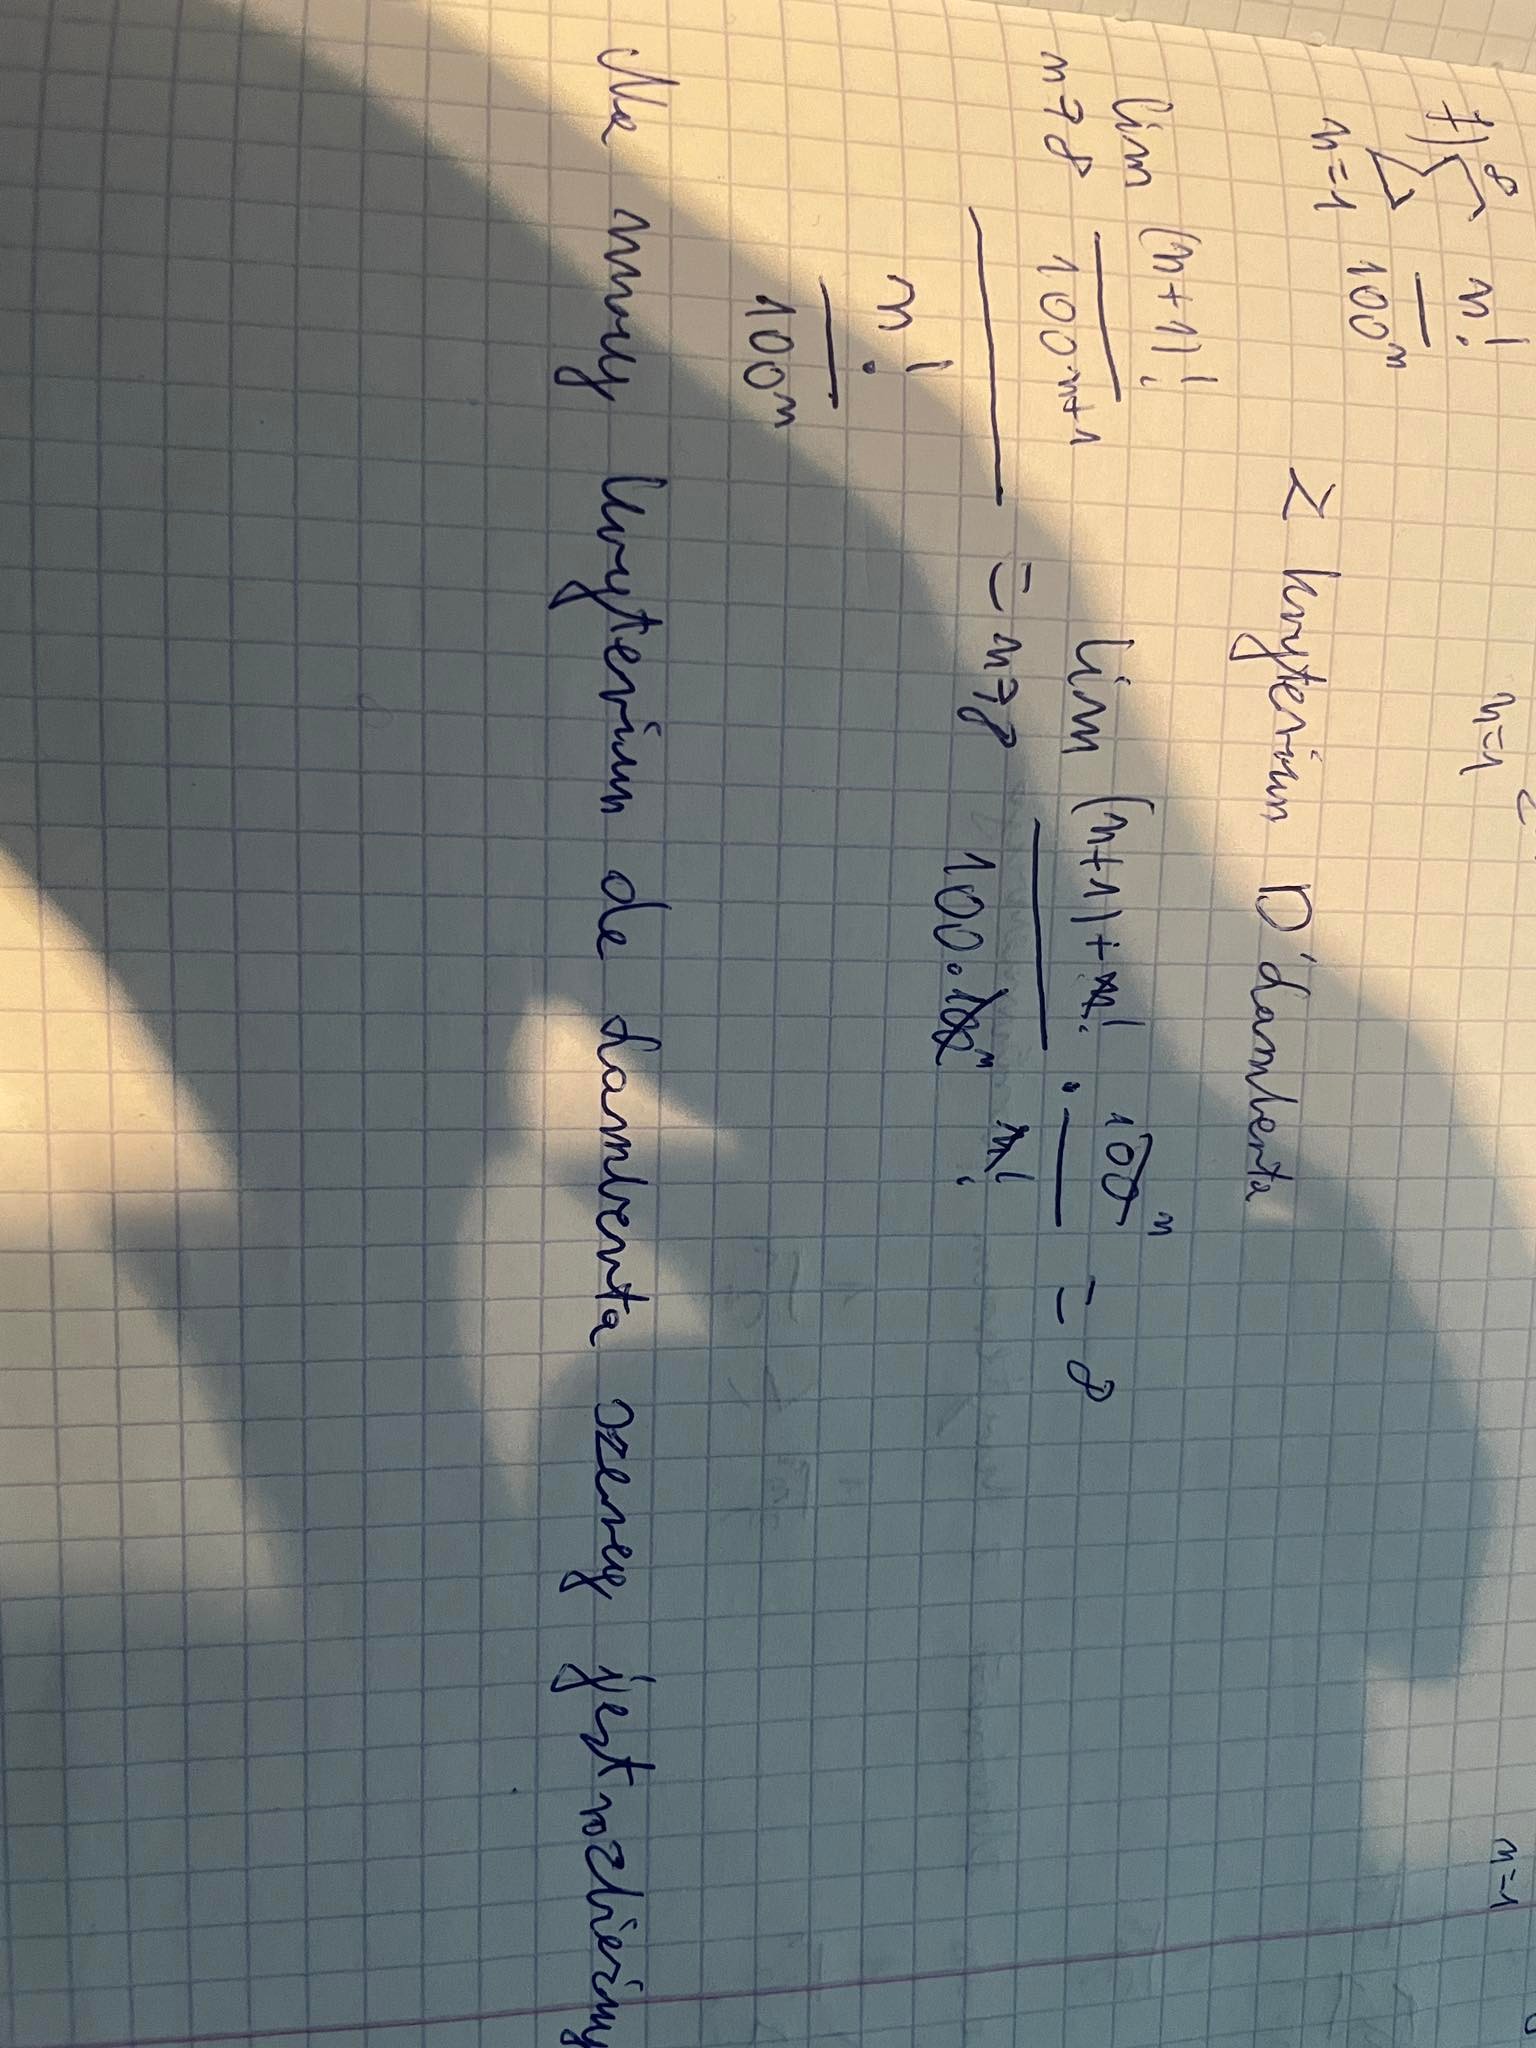 n=1
n=1
7) ∞ ∑ n=1 n!/100^n
Z kryterium D'Lamberta
lim n→∞ ((n+1)!/100^(n+1))/(n!/100^n) = lim n→∞ ((n+1)+n!)/(100·100^n) · 100^n/n! = ∞
Na mocy kryterium de Lamberta szereg jest rozbieżny